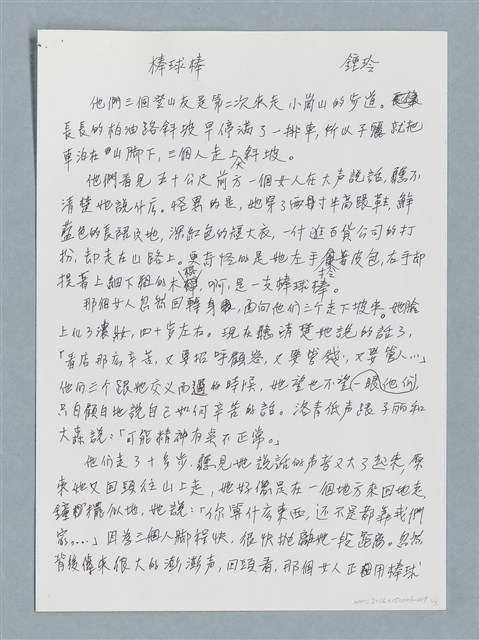 棒球棒 鍾玲
他們三個登山友是第二次來走小崗山的步道。
長長的柏油路斜坡早停滿了一排車,所以子麗就把
車泊在山脚下,三個人走上大斜坡。
他們看見五十公尺前方一個女人在大声說話,聽不
清楚她說什麼。怪異的是,她穿了兩吋半高跟鞋,鮮
藍色的長及地,深紅色的短大衣,一付逛百貨公司的打
扮,却走在山路上。更奇怪的是她左手拿著皮包,右手却
提著上細下粗的木棍,啊,是一支棒球棒。
那個女人忽然回轉身,面向他們三个走下坡來。她臉
上化了濃妝,四十岁左右。現在聽清楚她說的話了,
「看店那麼辛苦,又要招呼顧客,又要管錢,又要管人…」
他们三个跟她交叉而過的時候,她望也不望他們一眼,
只自顧自地說自己如何辛苦的話。洛青低声跟子麗和
大森說:「可能精神有点不正常。」
他们走了十多步,聽見她說話的声音又大了起來,原
來她又回頭往山上走,她好像是在一個地方來回地走,
鐘擺似地,她說:「你算什麼東西,還不是都靠我們
家,……」因為三個人脚程快,很快拋離她一段距离。忽然
背後傳來很大的澎澎声,回頭看,那個女人正用棒球